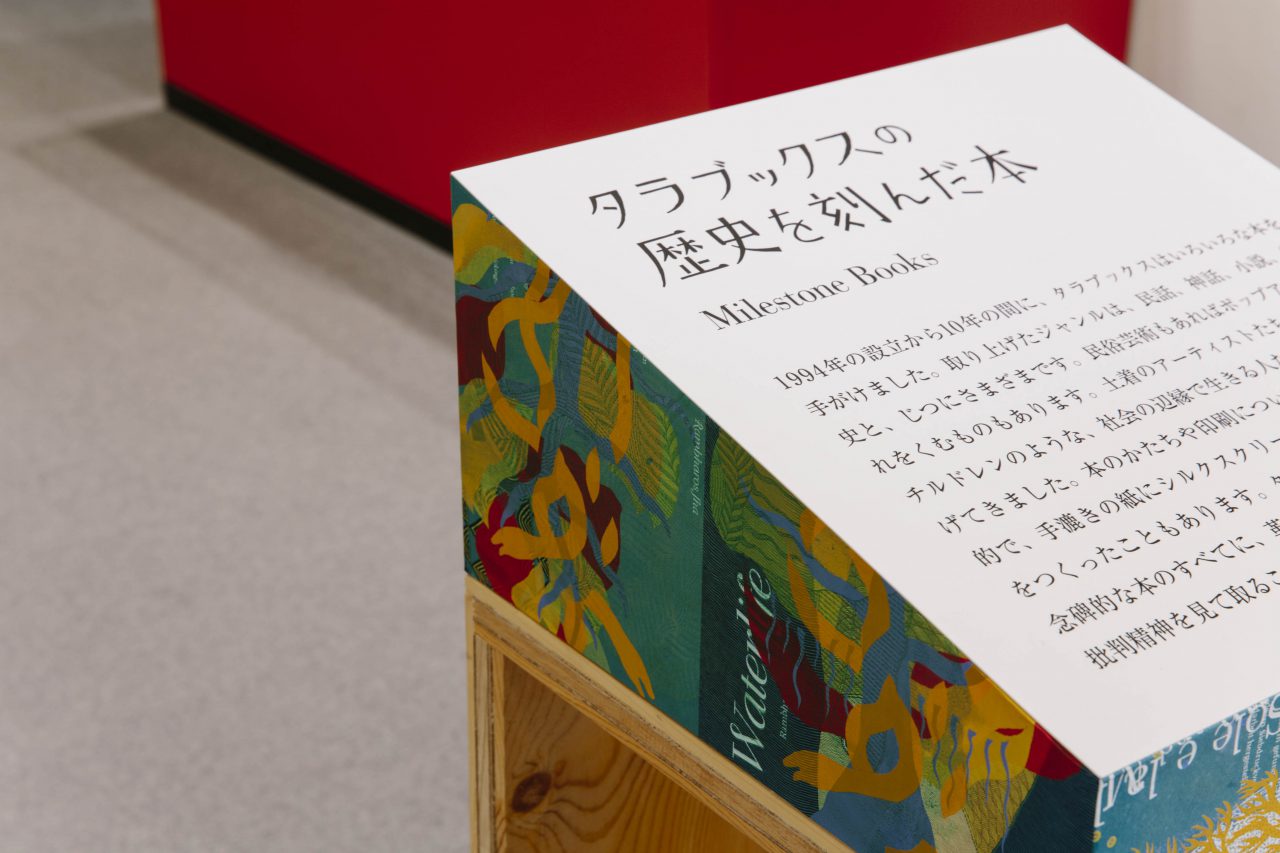 タラブックスの
歴史を刻んだ本
Milestone Books
1994年の設立から10年の間に、タラブックスはいろいろな本を
手がけました。取り上げたジャンルは、民話、神話、小説、
史と、じつにさまざまです。民俗芸術もあればポップア
れをくむものもあります。土着のアーティストた
チルドレンのような、社会の辺縁で生きる人
げてきました。本のかたちや印刷につい
的で、手漉きの紙にシルクスクリー
をつくったこともあります。
念碑的な本のすべてに、
批判精神を見て取るこ
Rambharos Jha
Waterlife
Rambh